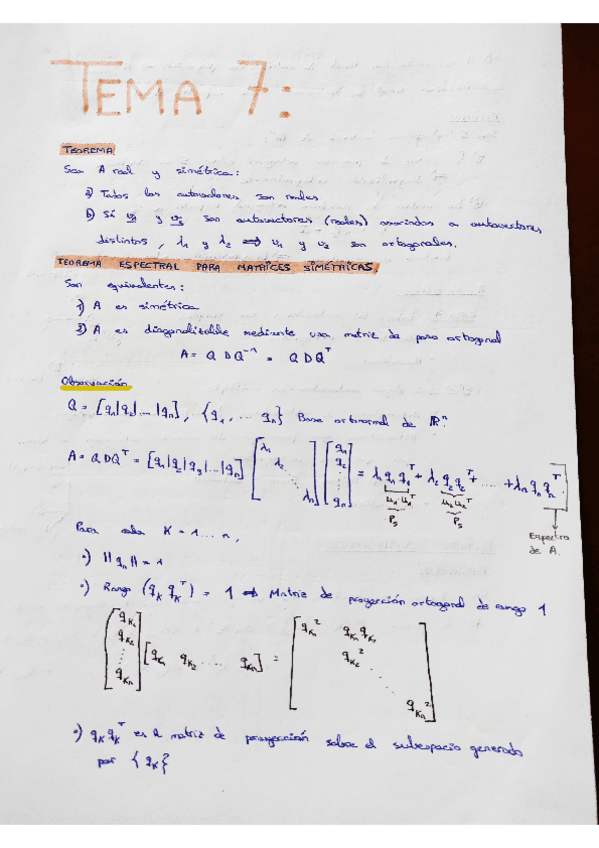 TEMA 7:
TEOREMA
Sea A real y simétrica:
a) Todos los autovalores son reales
b) Si v₁ y v₂ son autovectores (reales) asociados a autovectores
distintos, λ₁ y λ₂ ⟹ v₁ y v₂ son ortogonales.
TEOREMA ESPECTRAL PARA MATRICES SIMÉTRICAS.
Son equivalentes:
1) A es simétrica
2) A es diagonalizable mediante una matriz de paso ortogonal
A = Q D Q⁻¹ = Q D Qᵀ
Observación
Q = [q₁|q₂|...|qₙ], {q₁, ... qₙ} Base ortonormal de ℝⁿ.
A = Q D Qᵀ = [q₁|q₂|q₃|...|qₙ] [λ₁ λ₂ ... λₙ] [q₁ q₂ ... qₙ] = λ₁q₁q₁ᵀ + λ₂q₂q₂ᵀ + .... + λₙqₙqₙᵀ
u₁u₁ᵀ u₂u₂ᵀ
Pₛ Pₛ
Espectro
de A.
Para cada K = 1 ... n,
·) ||qₙ|| = 1
·) Rango (q_K q_Kᵀ) = 1 ⟹ Matriz de proyección ortogonal de rango 1
[q_K₁ q_K₂ ⋮ q_Kₙ] [q_K₁ q_K₂ ..... q_Kₙ] = [q_K₁² q_K₁q_K₂ q_K₂² ⋱ q_Kₙ²]
·) q_K q_Kᵀ es la matriz de proyección sobre el subespacio generado
por {q_K}